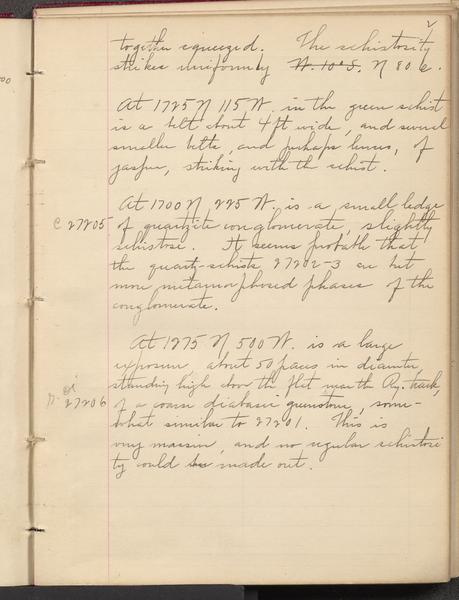 2
together squeezed. The schistosity
strikes uniformly W. 10° S. N 80 E.
At 1725 N 115 W. in the green schist
is a belt about 4 ft wide, and several
smaller belts, and perhaps lenses, of
jasper, striking with the schist.
At 1700 N, 225 W. is a small ledge
C 27205 of quartzite conglomerate, slightly
schistose. It seems probable that
the quartz-schists 27202-3 are but
more metamorphosed phases of the
conglomerate.
At 1275 N 500 W. is a large
exposure, about 50 paces in diameter,
standing high above the flat near the Ry. track,
27206 of a coarse diabasic greenstone, some-
what similar to 27201. This is
very massive, and no regular schistosi
ty could be made out.